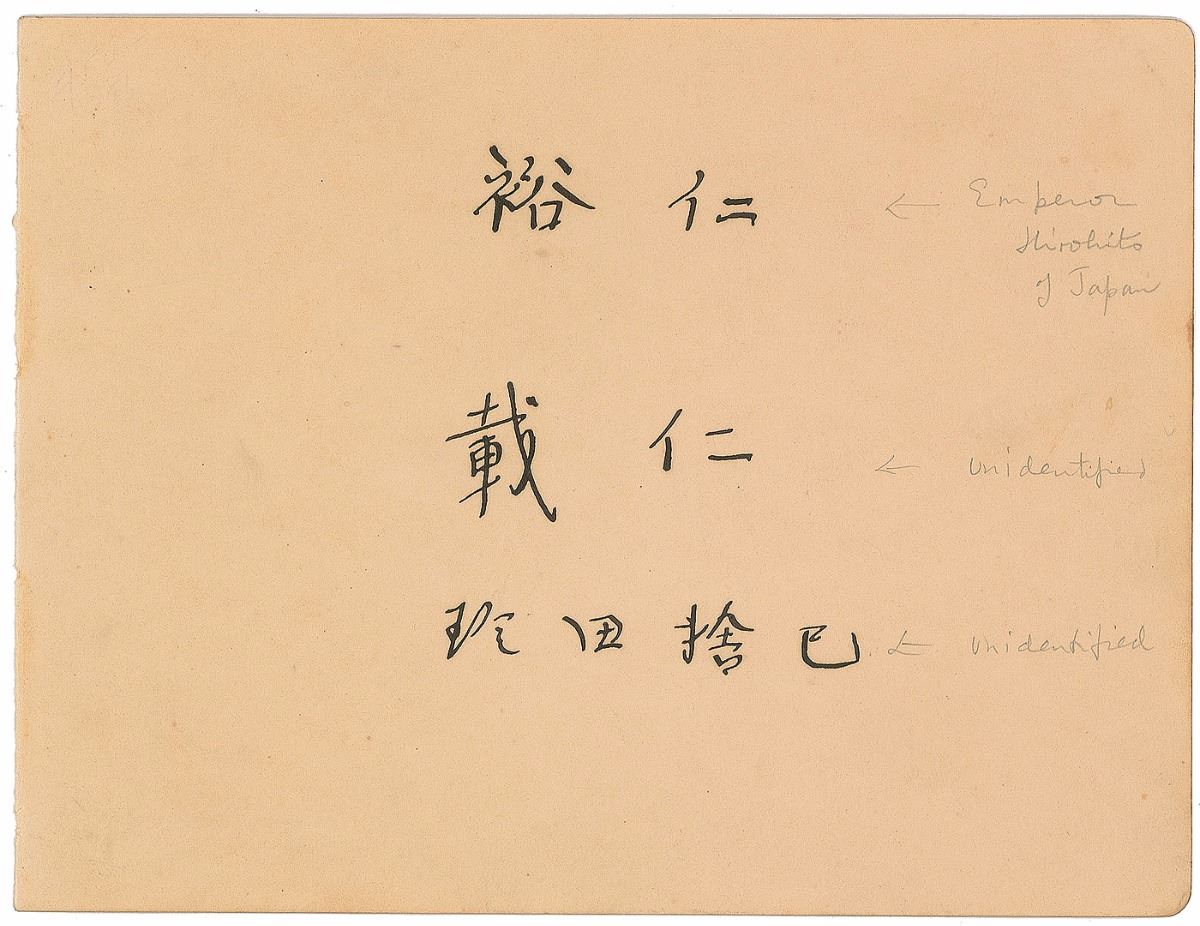 裕仁 ← Emperor
Hirohito
of Japan
載仁 ← unidentified
珍田捨巳 ← unidentified